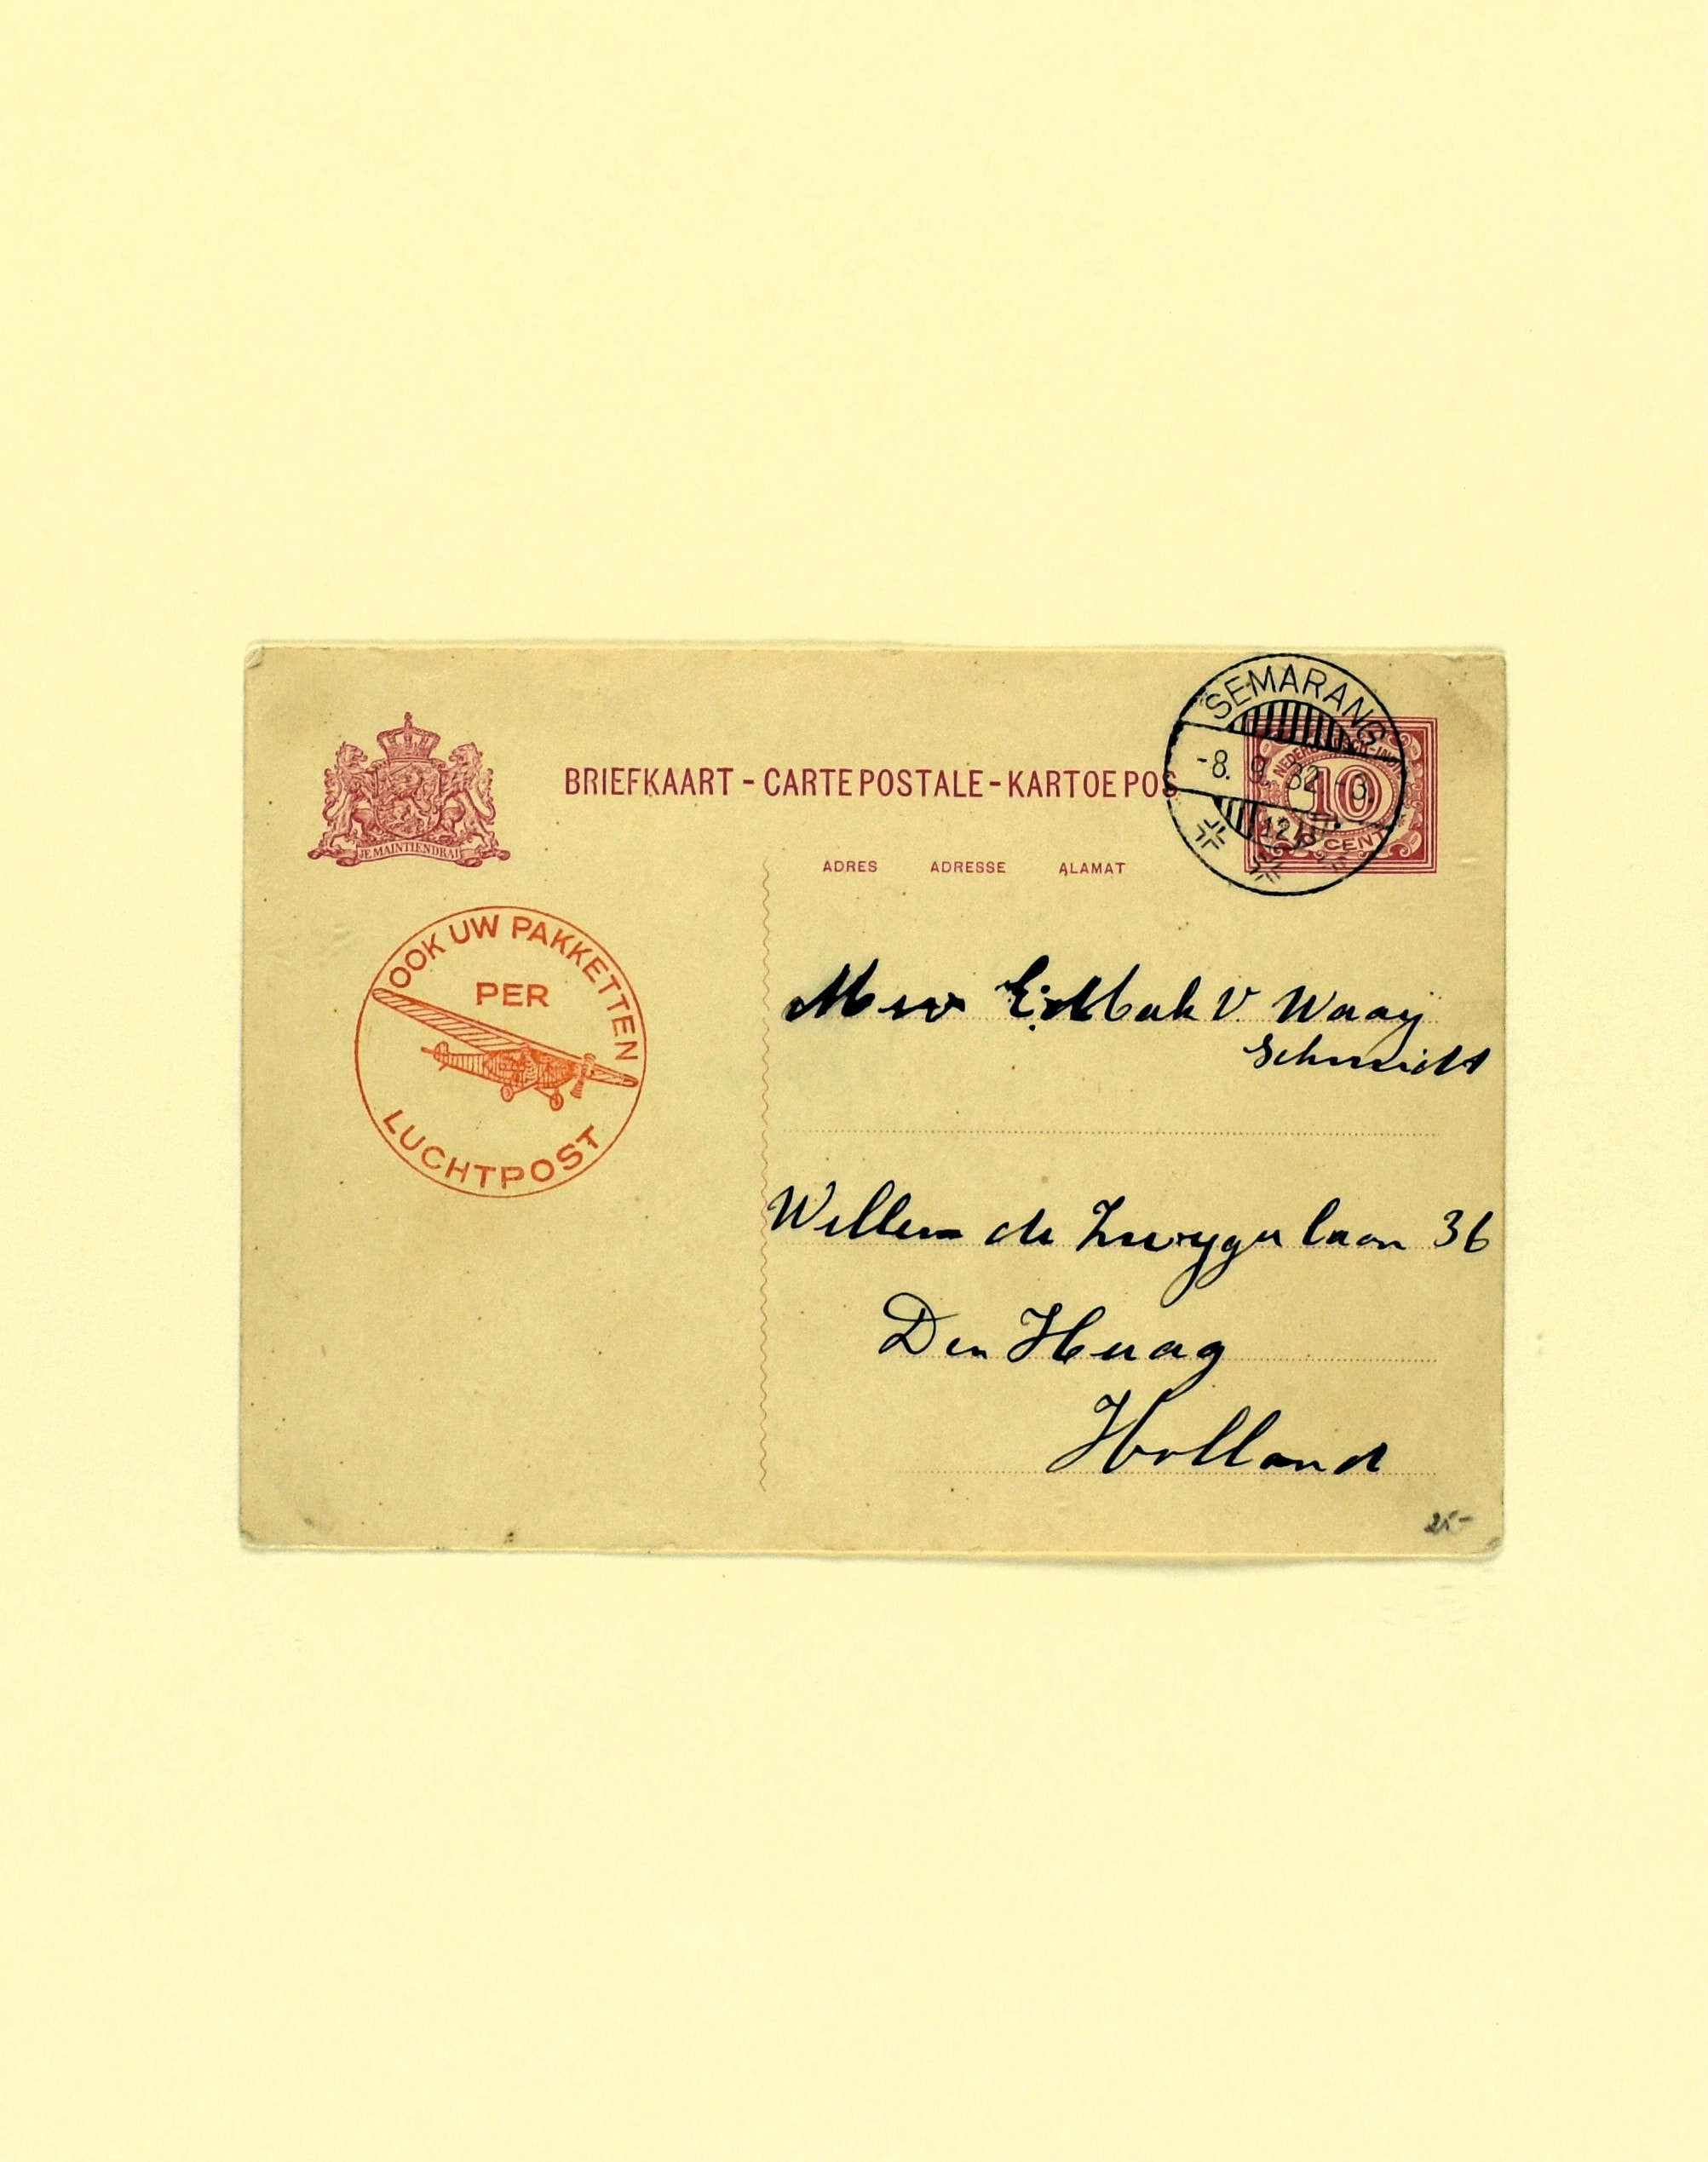 BRIEFKAART - CARTE POSTALE - KARTOE POS
JE MAINTIENDRAI
SEMARANG
-8. 9. 32 -3.
12
10
CENT
ADRES ADRESSE ALAMAT
OOK UW PAKKETTEN
PER
LUCHTPOST
Mevr V. Waay
Schmidt
Willem de Zwyger laan 36
Den Haag
Holland
25-